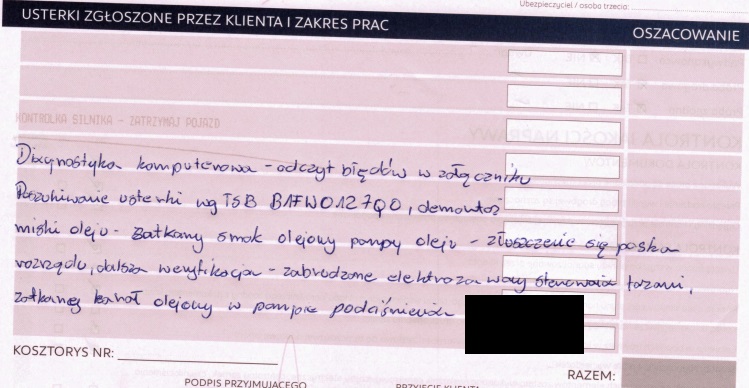 Ubezpieczyciel / osoba trzecia:
USTERKI ZGŁOSZONE PRZEZ KLIENTA I ZAKRES PRAC
OSZACOWANIE
KONTROLKA SILNIKA - ZATRZYMAJ POJAZD
Diagnostyka komputerowa - odczyt błędów w załączniku
Poszukiwanie usterki wg TSB B1FW0127Q0, demontaż
miski oleju - zatkany smok olejowy pompy oleju - złuszczenie się paska
rozrządu, dalsza weryfikacja - zabrudzone elektrozawory sterowania fazami,
zatkany kanał olejowy w pompie podciśnienia
KOSZTORYS NR:
RAZEM:
PODPIS PRZYJMUJĄCEGO
PRZYJĘCIE KLIENTA